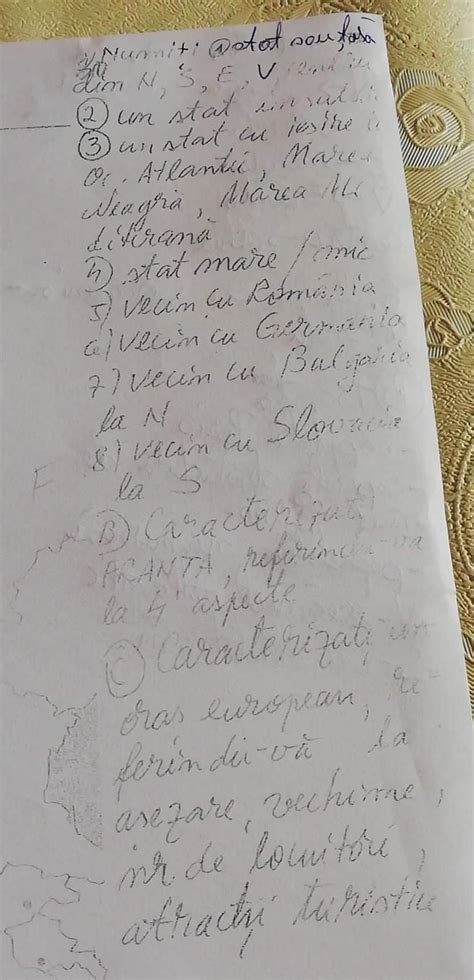 Numiti ① stat sau țară
din N, S, E, V
② un stat insular
③ un stat cu iesire la
Oc. Atlantic, Marea
Neagră, Marea Me
diterană
4) stat mare / mic
5) vecin cu România
6) vecin cu Germania
7) vecin cu Bulgaria
la N
8) vecin cu Slovacia
la S
B) Caracterizati
FRANTA, referindu-va
la 4 aspecte
C) Caracterizati un
oras european, re-
ferindu-vă la
asezare, vechime,
nr. de locuitori,
atractii turistice